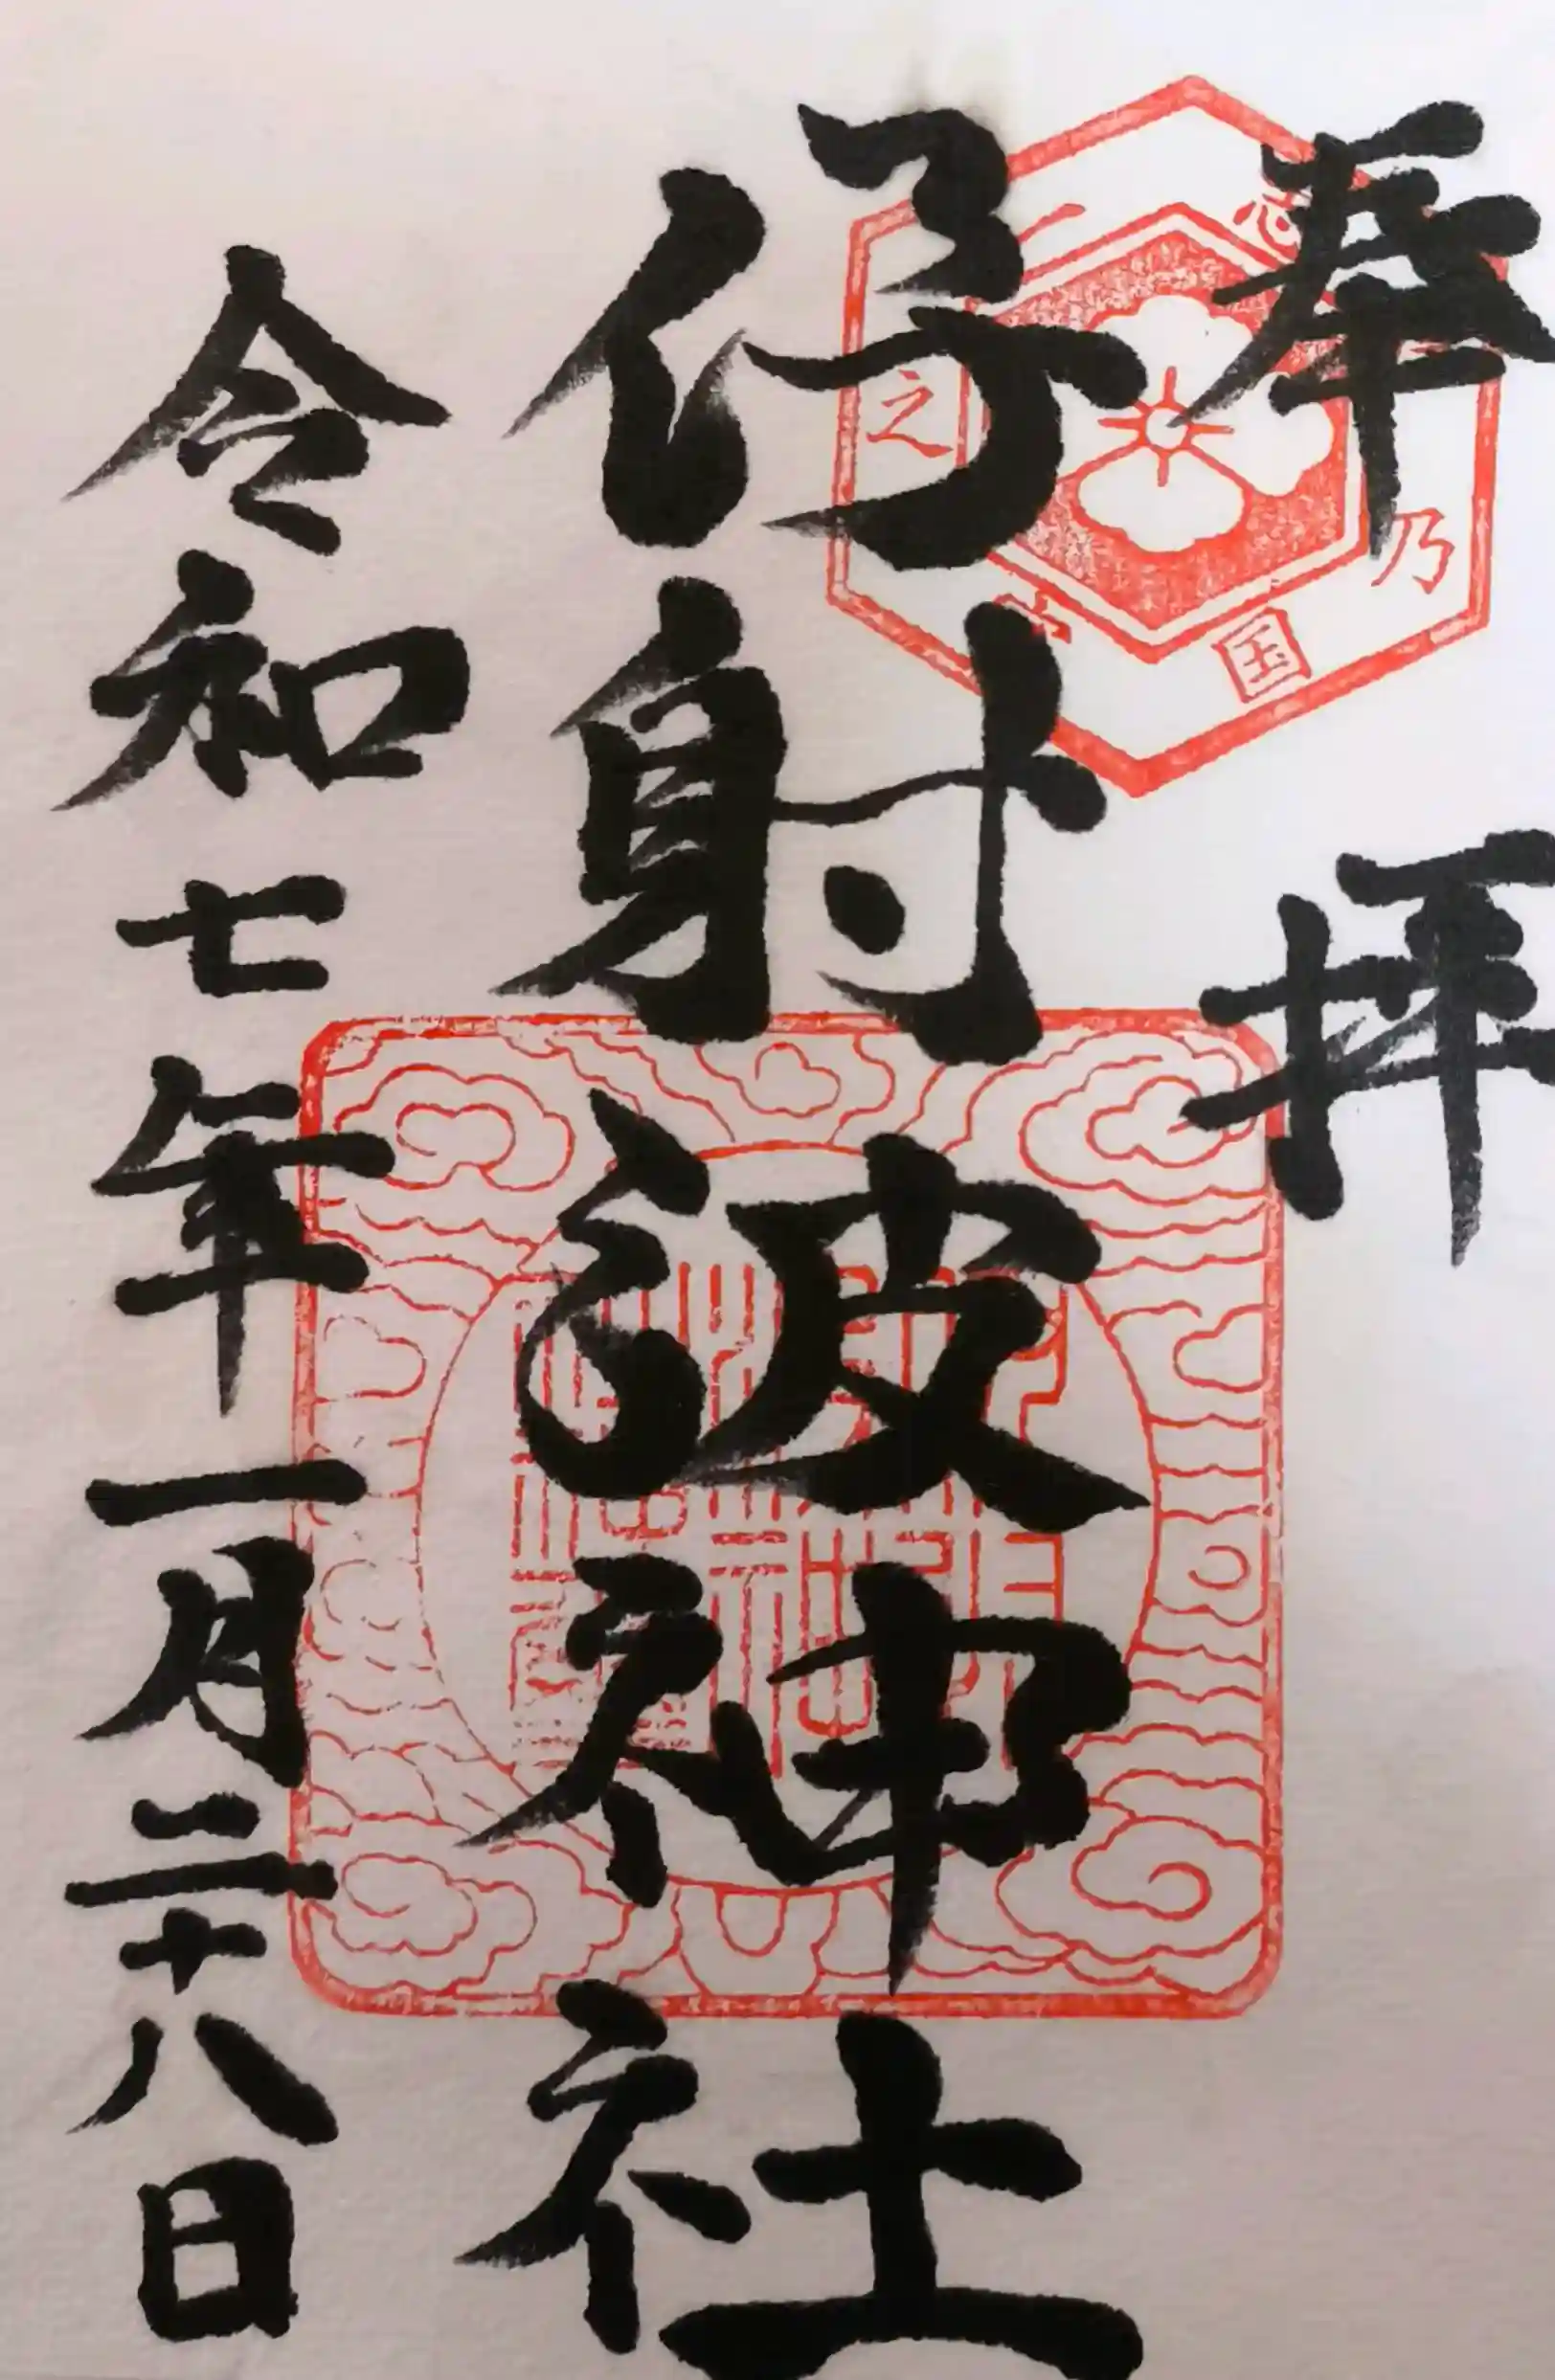 奉拝
伊射波神社
令和七年一月二十八日
志
乃
国
一
之
宮